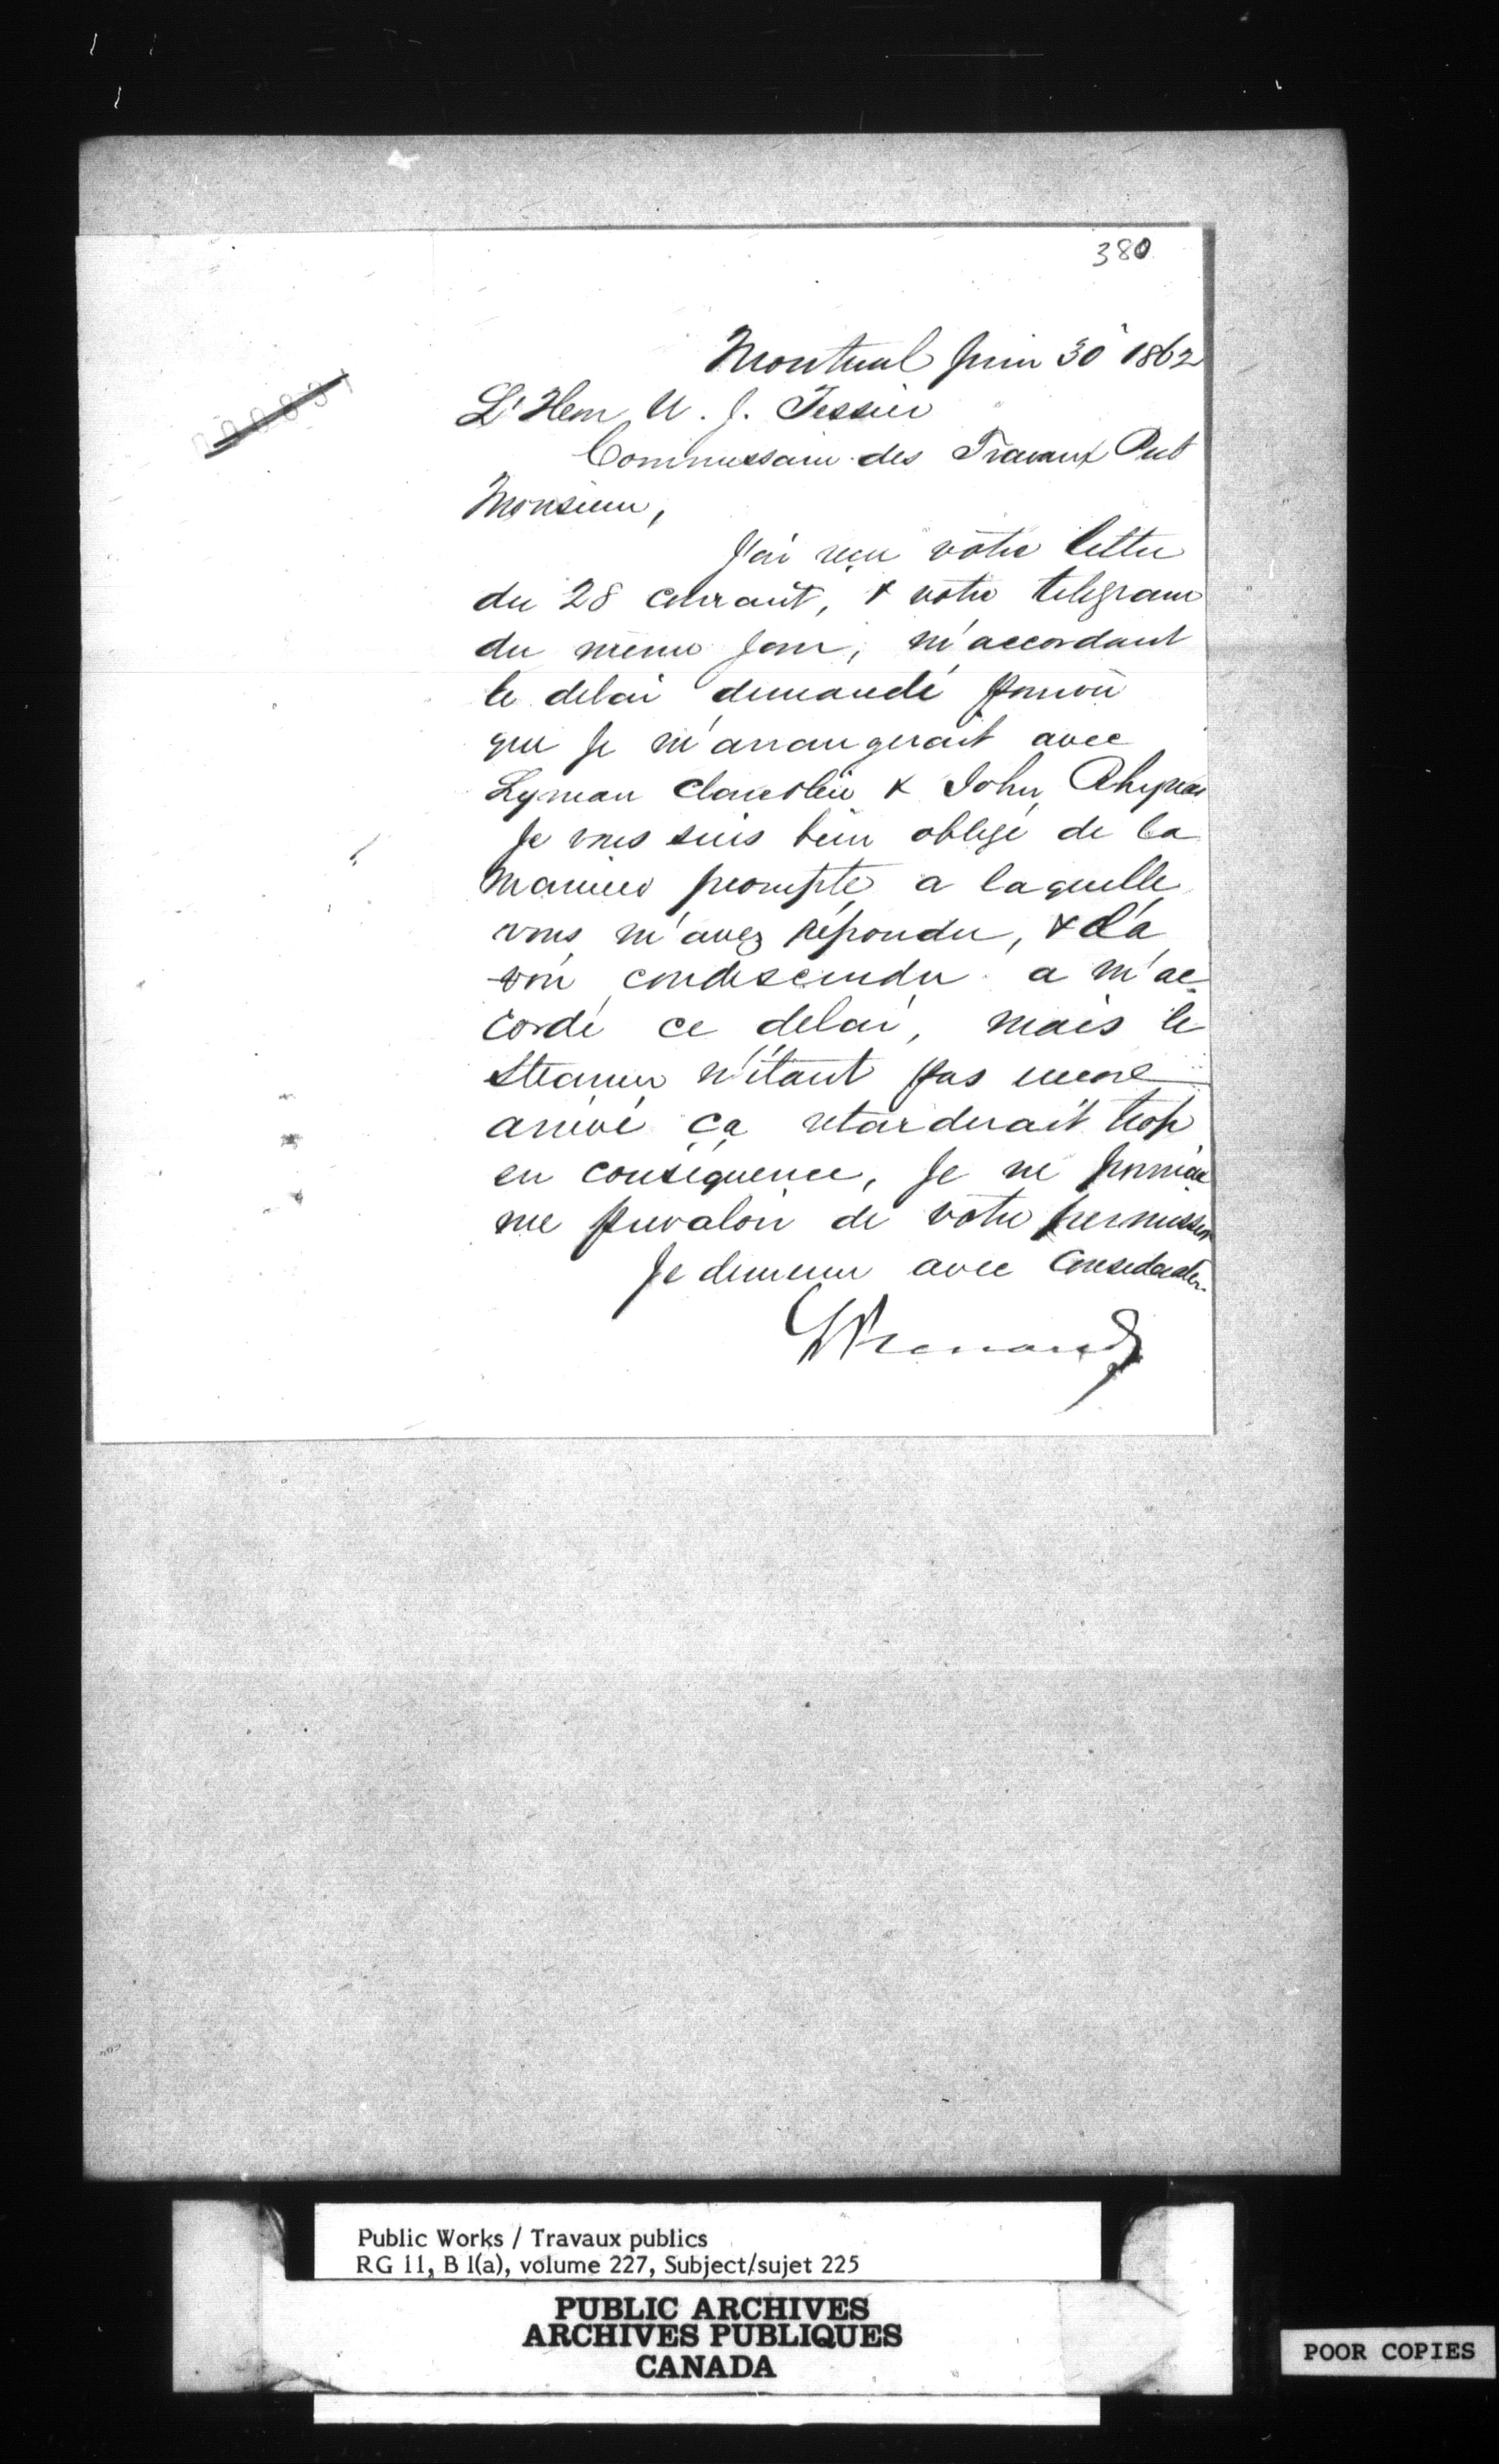 380
Montreal Juin 30 1862
L'Hon U. J. Tessier
Commissaire des Travaux Pub
Monsieur,
J'ai reçu votre lettre
du 28 courant, & votre telegram
du même jour, m'accordant
le delai demandé pourvu
que je m'arrangerait avec
Lyman & John
Je vous suis bien obligé de la
maniere prompte a laquelle
vous m'avez répondu, & d'a
voir condescendu a m'ac
cordé ce delai, mais le
Steamer n'étant pas encore
arrivé ça retarderait trop
en conséquence, Je ne
me prevaloir de votre permission
Je demeure avec Consideration
Public Works / Travaux publics
RG 11, B 1(a), volume 227, Subject/sujet 225
PUBLIC ARCHIVES
ARCHIVES PUBLIQUES
CANADA
POOR COPIES